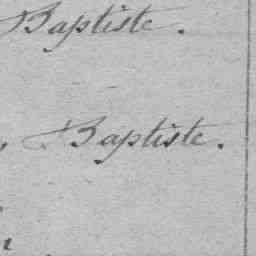 Baptiste.
Baptiste.